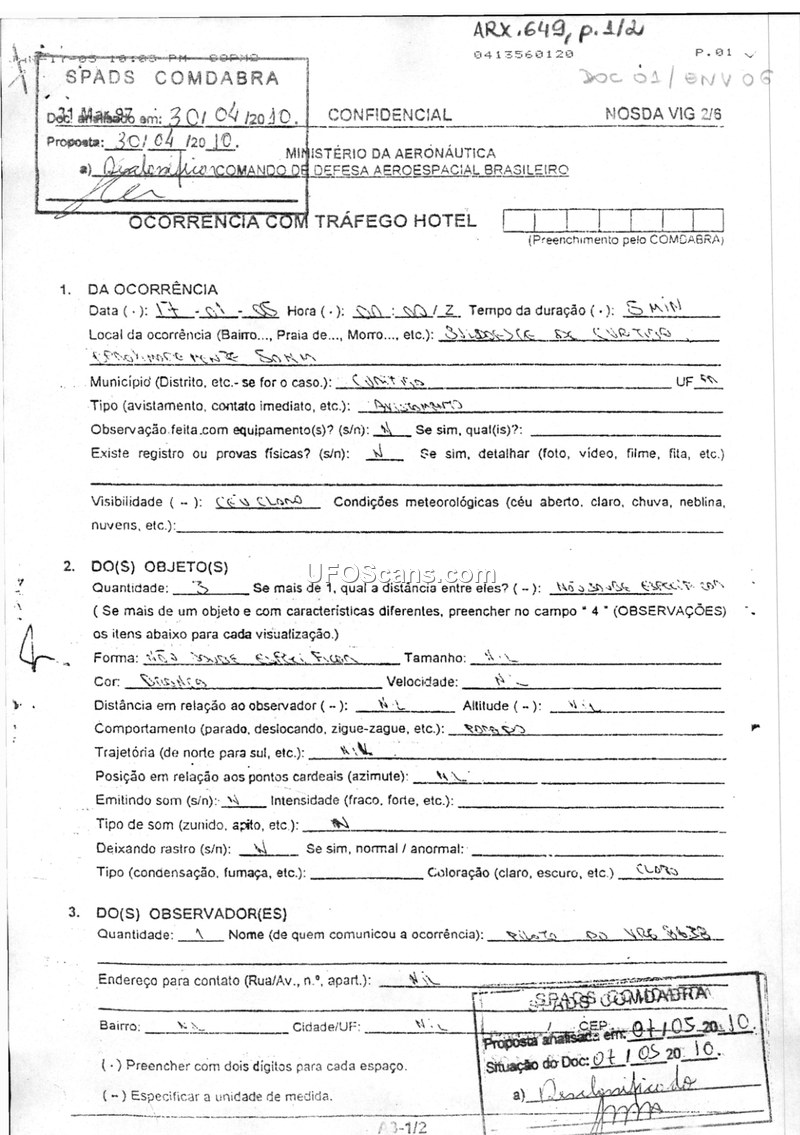 ARX.649, p.1/2
17-05 10:03 PM COPM2 0413560120 P.01
DOC 01/ENV 06
SPADS COMDABRA
31 Mar 97 CONFIDENCIAL NOSDA VIG 2/6
Doc. analisado em: 30/04/2010.
Proposta: 30/04/2010.
a) Desclassificar
MINISTÉRIO DA AERONÁUTICA
COMANDO DE DEFESA AEROESPACIAL BRASILEIRO
OCORRÊNCIA COM TRÁFEGO HOTEL
(Preenchimento pelo COMDABRA)
1. DA OCORRÊNCIA
Data (·): 17-01-05 Hora (·): 00:00/Z Tempo da duração (·): 5 MIN
Local da ocorrência (Bairro..., Praia de..., Morro..., etc.): SUDOESTE DE CURITIBA,
APROXIMADAMENTE
Município (Distrito, etc.- se for o caso.): CURITIBA UF PR
Tipo (avistamento, contato imediato, etc.): AVISTAMENTO
Observação feita com equipamento(s)? (s/n): N Se sim, qual(is)?:
Existe registro ou provas físicas? (s/n): N Se sim, detalhar (foto, vídeo, filme, fita, etc.)
Visibilidade (--): CÉU CLARO Condições meteorológicas (céu aberto, claro, chuva, neblina,
nuvens, etc.):
2. DO(S) OBJETO(S)
UFOScans.com
Quantidade: 3 Se mais de 1, qual a distância entre eles? (--): NÃO SOUBE ESPECIFICAR
( Se mais de um objeto e com características diferentes, preencher no campo " 4 " (OBSERVAÇÕES)
os itens abaixo para cada visualização.)
Forma: NÃO SOUBE ESPECIFICAR Tamanho: NIL
Cor: BRANCA Velocidade: NIL
Distância em relação ao observador (--): NIL Altitude (--): NIL
Comportamento (parado, deslocando, zigue-zague, etc.): PARADO
Trajetória (de norte para sul, etc.): NIL
Posição em relação aos pontos cardeais (azimute): NIL
Emitindo som (s/n): N Intensidade (fraco, forte, etc.):
Tipo de som (zunido, apito, etc.): N
Deixando rastro (s/n): N Se sim, normal / anormal:
Tipo (condensação, fumaça, etc.): Coloração (claro, escuro, etc.) CLARO
3. DO(S) OBSERVADOR(ES)
Quantidade: 1 Nome (de quem comunicou a ocorrência): PILOTO DO VRG 8633
Endereço para contato (Rua/Av., n.º, apart.): NIL
Bairro: NIL Cidade/UF: NIL / CEP
SPADS COMDABRA
Proposta analisada em: 07/05 2010.
Situação do Doc: 07/05 2010.
a) Desclassificado
(·) Preencher com dois dígitos para cada espaço.
(--) Especificar a unidade de medida.
A3-1/2